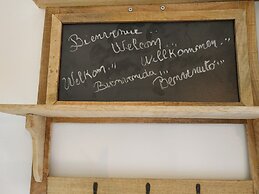 Bienvenue..
Welcom..
Welkom,,, Willkommen,,,
Bienvenida,,, Benvenuto,,,